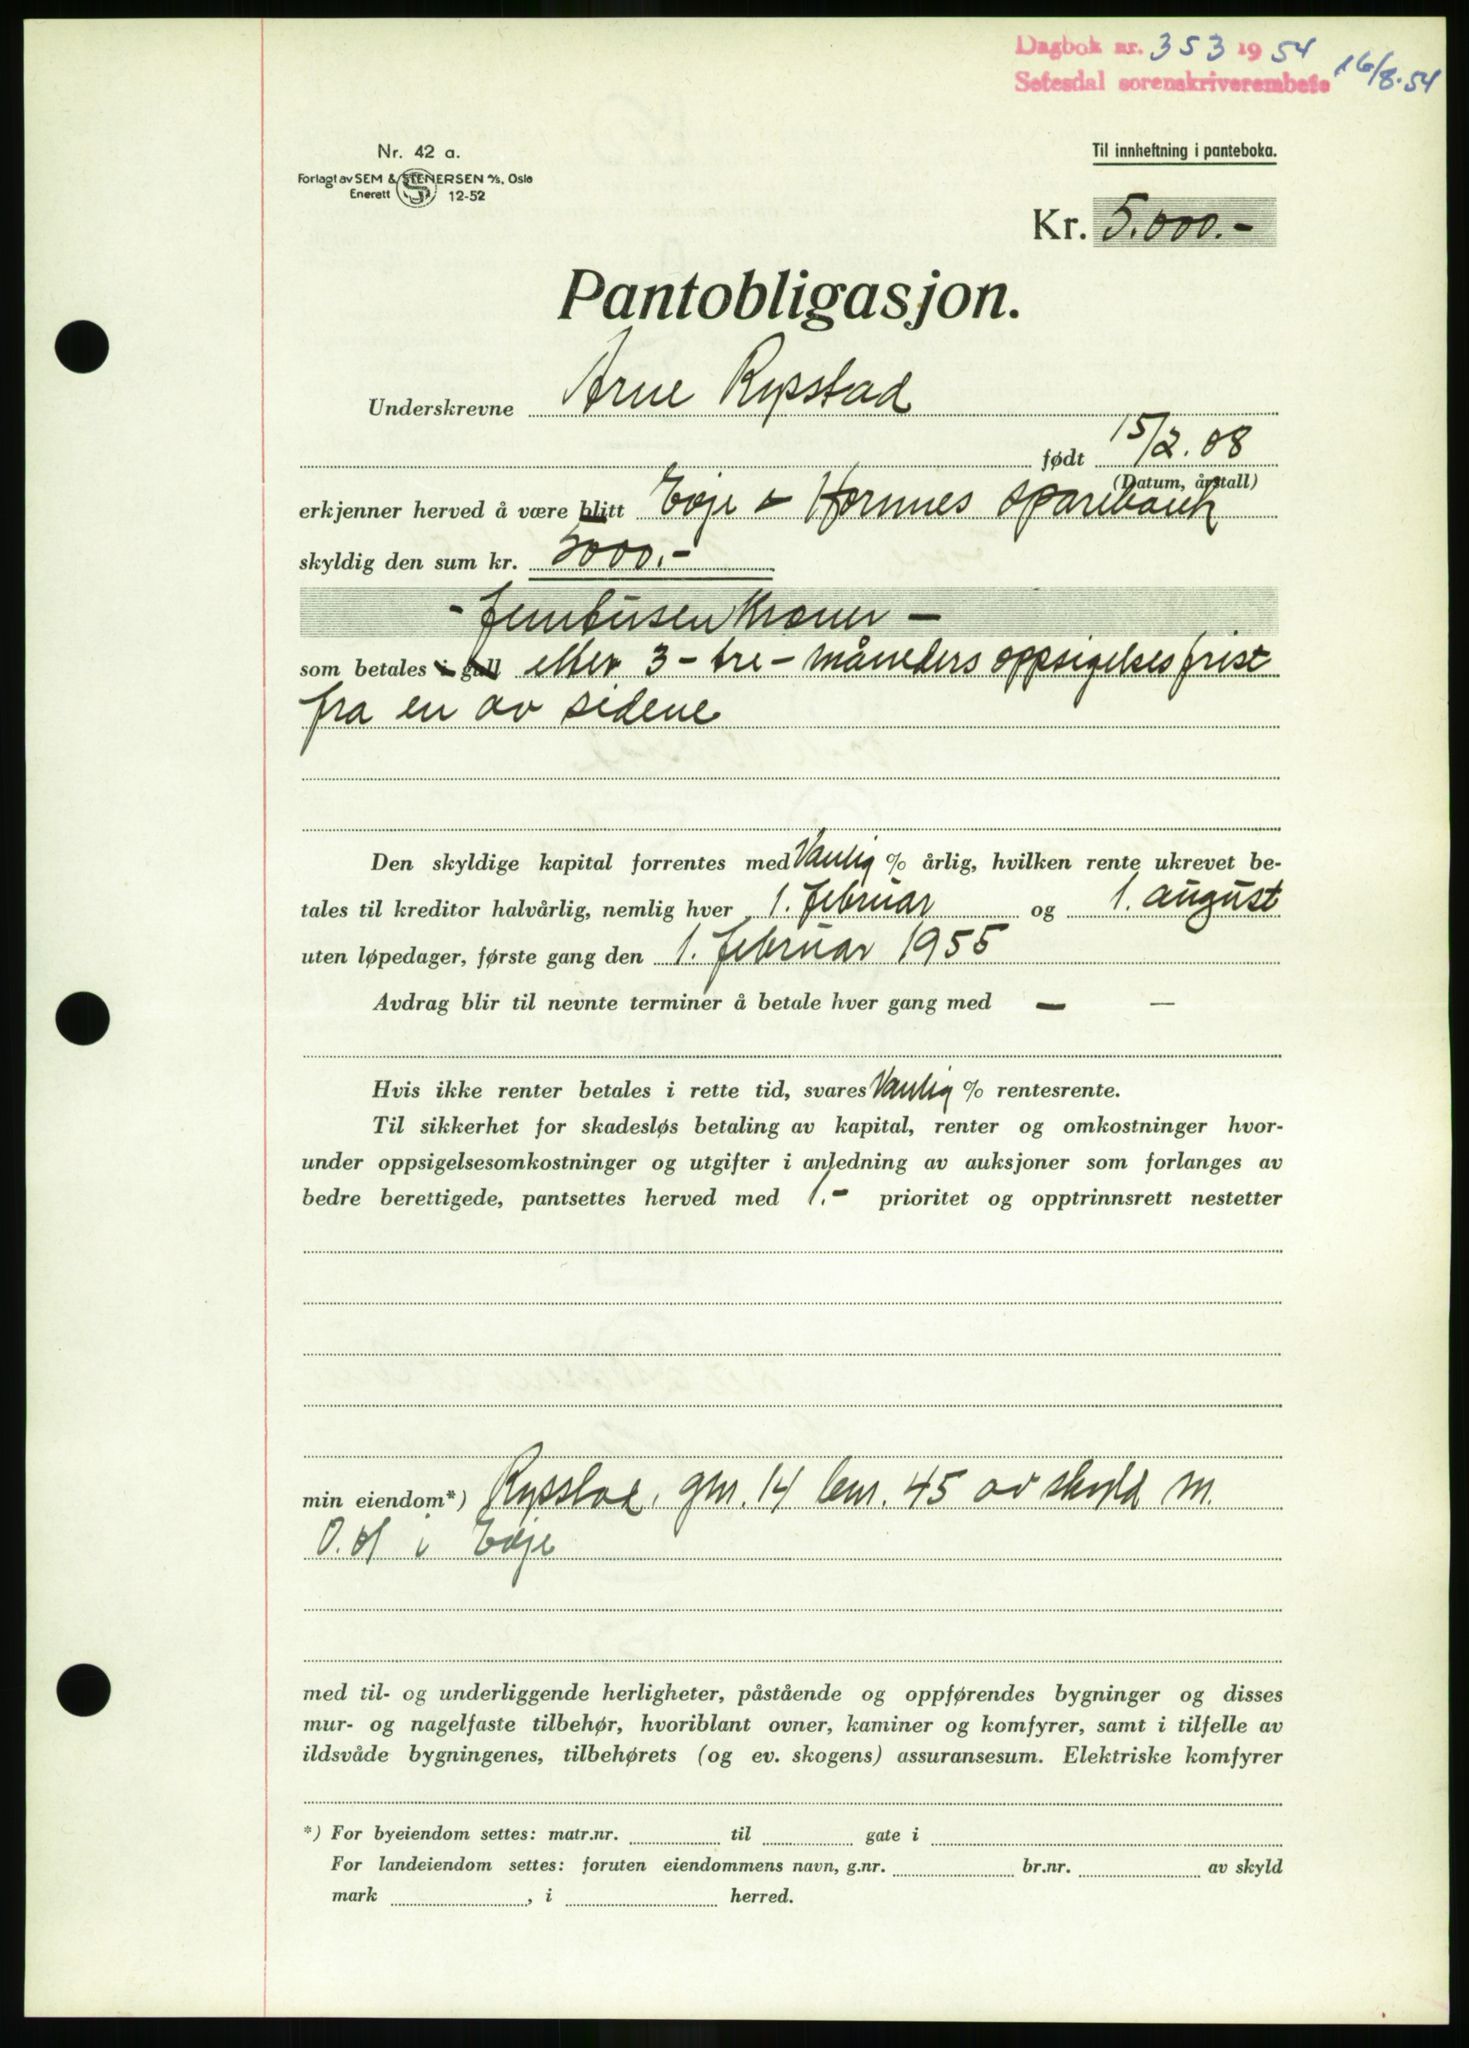 Dagbok nr. 353 1954
Setesdal sorenskriverembete 16/8.54
Nr. 42 a.
Forlagt av SEM & STENERSEN A/S, Oslo
Enerett S 12-52
Til innheftning i panteboka.
Kr. 5.000.-
Pantobligasjon.
Underskrevne Arne Rysstad
født 15/2.08
(Datum, årstall)
erkjenner herved å være blitt Evje & Hornnes Sparebank
skyldig den sum kr. 5000.-
- femtusen kroner -
som betales i gull etter 3 - tre - måneders oppsigelsesfrist
fra en av sidene
Den skyldige kapital forrentes med Vanlig % årlig, hvilken rente ukrevet be-
tales til kreditor halvårlig, nemlig hver 1. februar og 1. august
uten løpedager, første gang den 1. februar 1955
Avdrag blir til nevnte terminer å betale hver gang med — —
Hvis ikke renter betales i rette tid, svares Vanlig % rentesrente.
Til sikkerhet for skadesløs betaling av kapital, renter og omkostninger hvor-
under oppsigelsesomkostninger og utgifter i anledning av auksjoner som forlanges av
bedre berettigede, pantsettes herved med 1.- prioritet og opptrinnsrett nestetter
min eiendom*) gnr. 14 bnr. 45 av skyld m.
i Evje
med til- og underliggende herligheter, påstående og oppførendes bygninger og disses
mur- og nagelfaste tilbehør, hvoriblant ovner, kaminer og komfyrer, samt i tilfelle av
ildsvåde bygningenes, tilbehørets (og ev. skogens) assuransesum. Elektriske komfyrer
*) For byeiendom settes: matr.nr. til gate i
For landeiendom settes: foruten eiendommens navn, g.nr. br.nr. av skyld
mark , i herred.